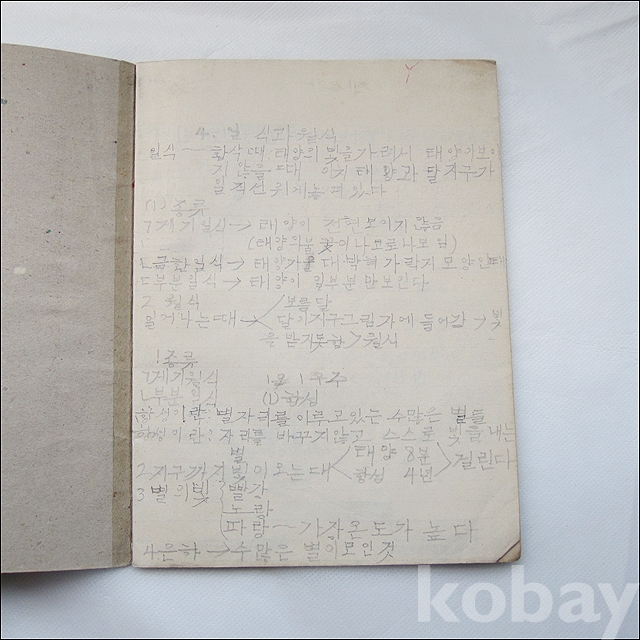 4. 일식과 월식
일식 — 태양의 빛을 가려서 태양이 보이
지 않을 때 이기 태양과 달 지구가
일직선 위에 놓여있다
(1) 종류
ㄱ개기일식 → 태양이 전현 보이기 않음
(태양의 불꽃이나 코로나 보임)
ㄴ금환일식 → 태양가 모양인때
ㄷ부분일식 → 태양이 일부분만 보인다
2 월식
보름달
일어나는 때 → 달이 지구그림자에 들어감 → 빛
을 받기 못함 > 월식
1 종류
ㄱ개기월식 1 우주
ㄴ부분월식 (1) 항성
별자리를 이루고 있는 수많은 별들
항성이란: 자리를 바꾸지 않고 스스로 빛을 내는
별
2 지구까지 빛이 오는 때 태양 8분 걸린다
항성 4년
3 별의 빛 빨간
노랑
파랑 — 가장 온도가 높다
4 은하 → 수많은 별이 모인것
kobay